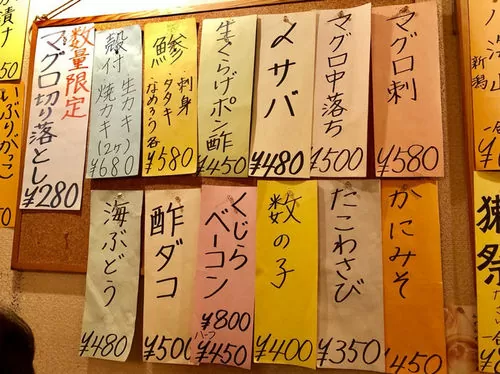 マグロ刺
¥580
マグロ中落ち
¥500
〆サバ
¥480
生くらげポン酢
¥450
鯵
刺身
・タタキ
・なめろう各
¥580
殻付
生カキ
焼カキ(2ヶ)
¥680
数量限定
マグロ切り落とし
¥280
かにみそ
450
たこわさび
¥350
数の子
¥400
くじら
ベーコン
¥800
ハーフ
¥450
酢ダコ
¥500
海ぶどう
¥480
いぶりがっこ
漬け
新潟
獺祭
一合